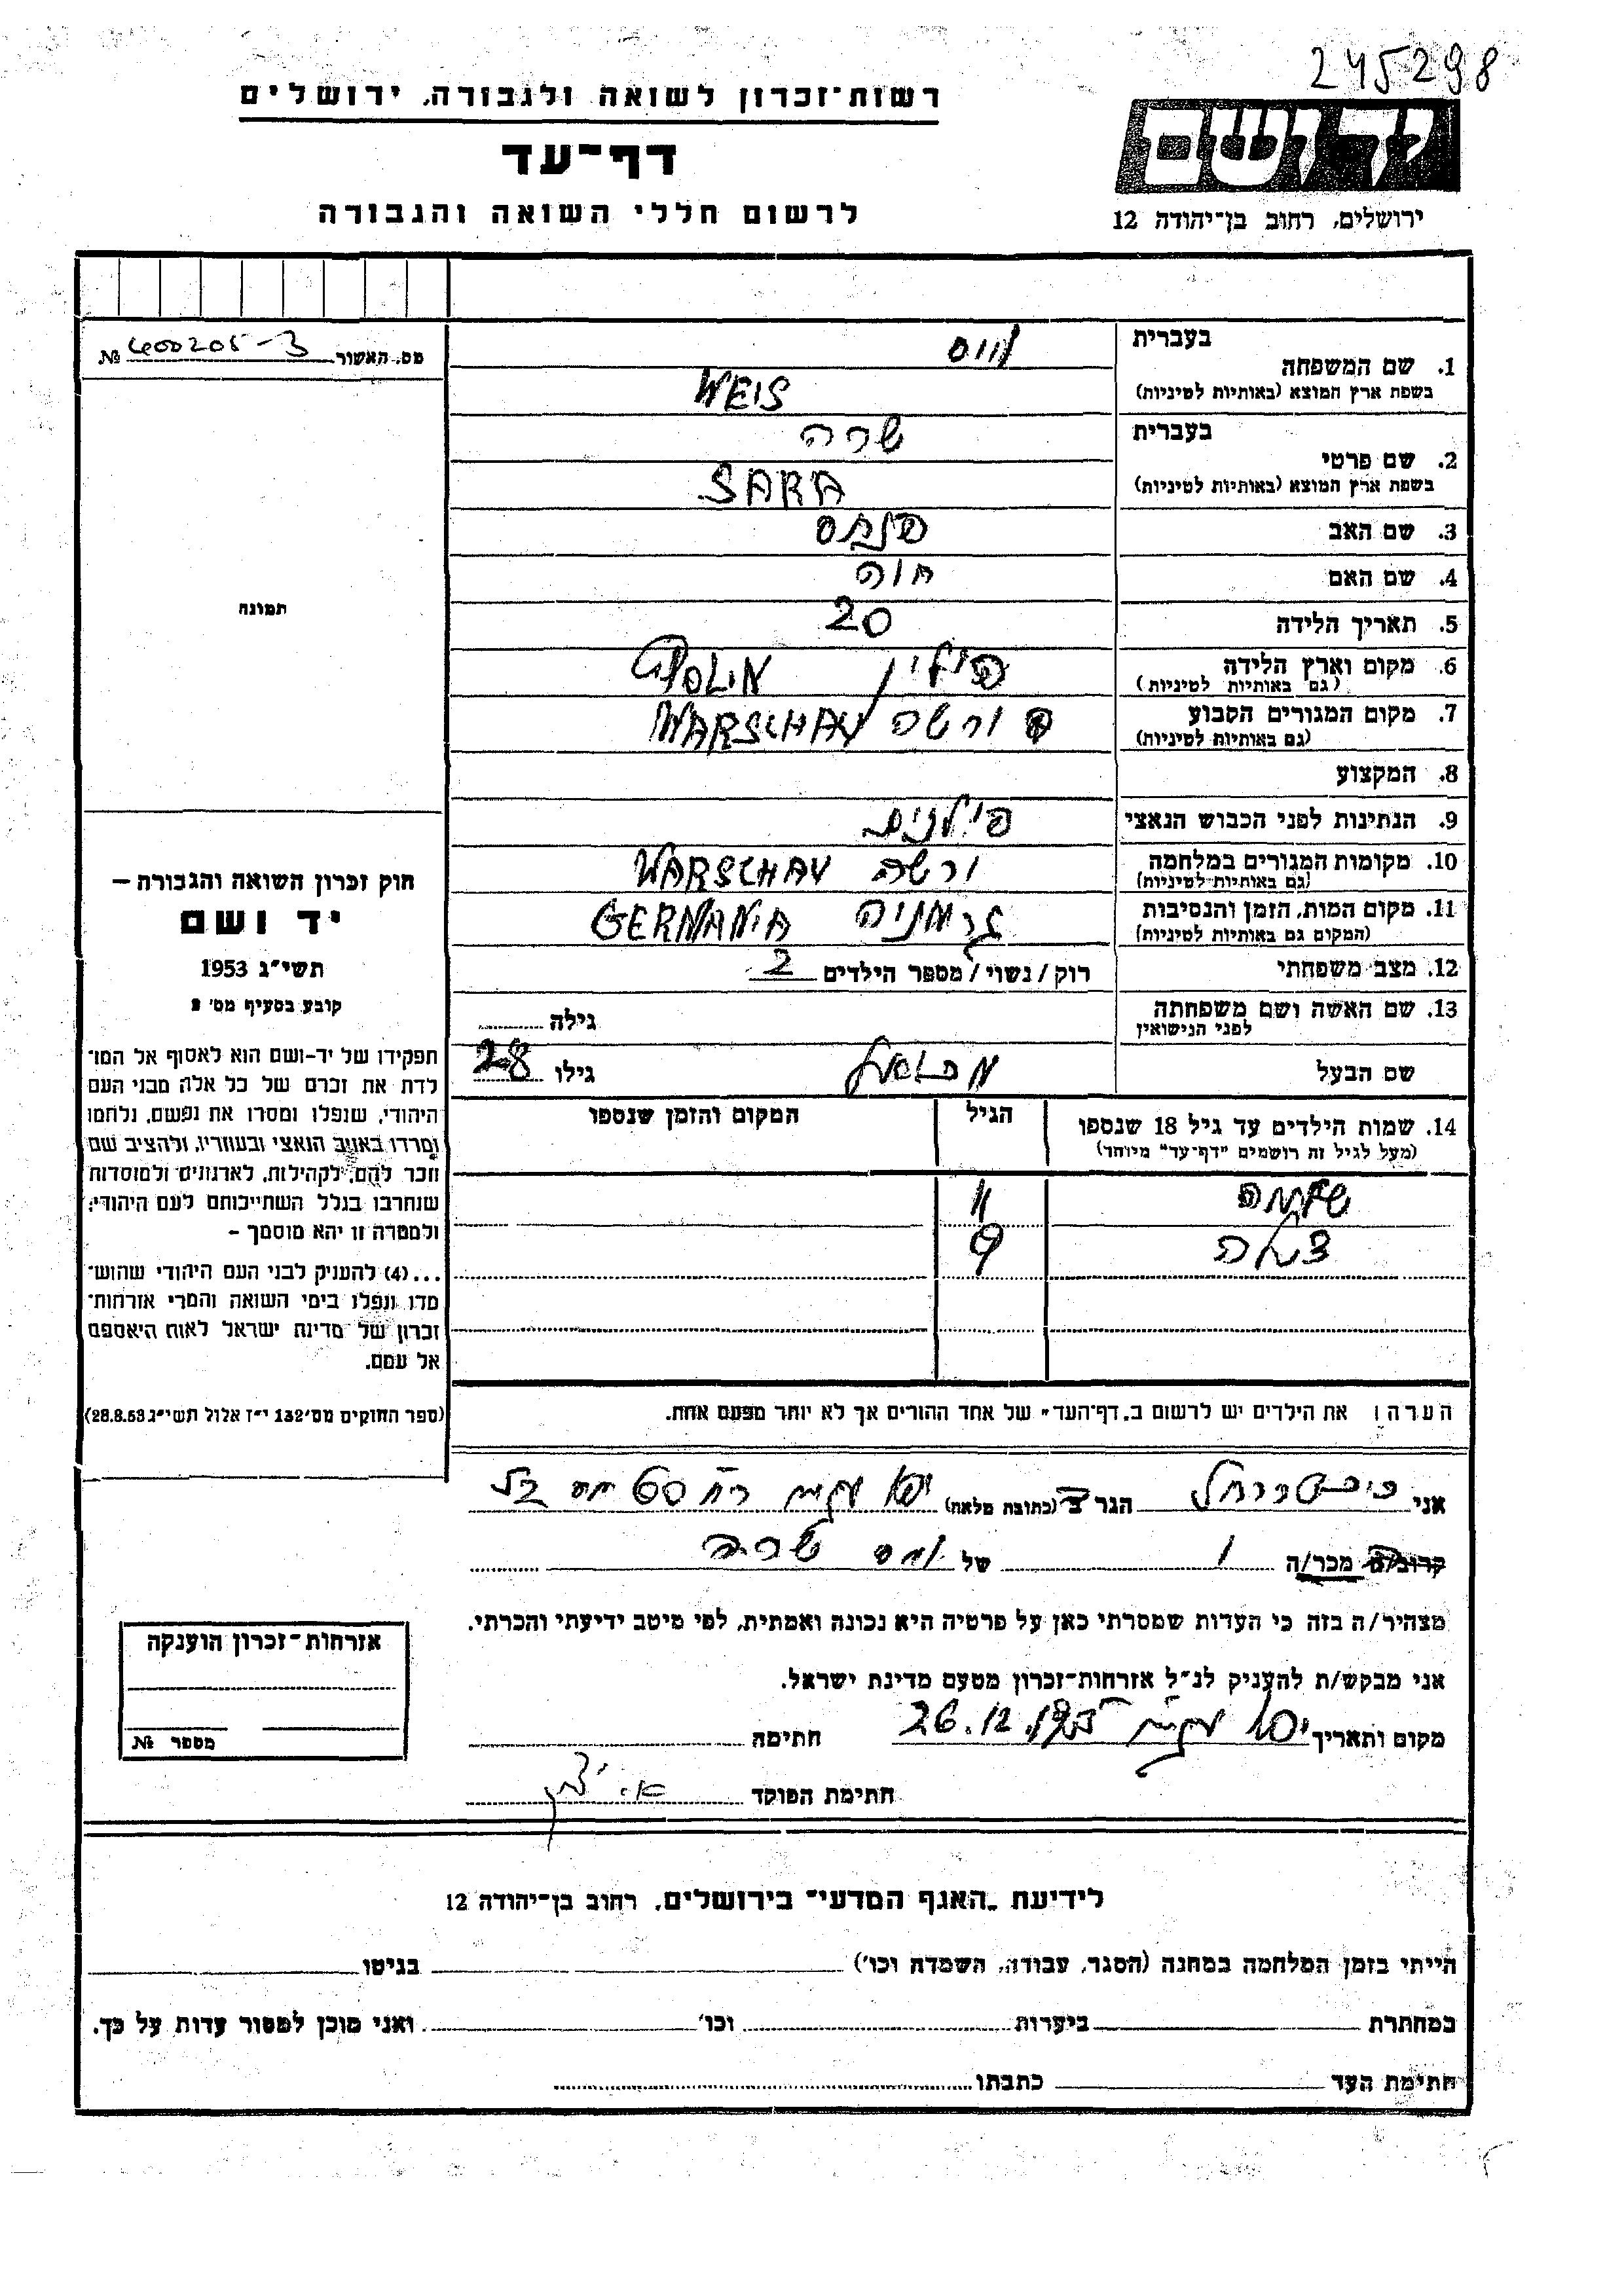 245298
רשות-זכרון לשואה ולגבורה, ירושלים
דף-עד
לרשום חללי השואה והגבורה
יד ושם
ירושלים, רחוב בן-יהודה 12
מס. האשור № 400205-3
בעברית
1. שם המשפחה
ווייס
בשפת ארץ המוצא (באותיות לטיניות)
WEIS
בעברית
2. שם פרטי
שרה
בשפת ארץ המוצא (באותיות לטיניות)
SARA
3. שם האב פנחס
4. שם האם חוה
5. תאריך הלידה 20
6. מקום וארץ הלידה
(גם באותיות לטיניות)
פולין
7. מקום המגורים הקבוע ורשה WARSCHAV
(גם באותיות לטיניות)
8. המקצוע
9. הנתינות לפני הכבוש הנאצי
10. מקומות המגורים במלחמה ורשה WARSCHAV
(גם באותיות לטיניות)
11. מקום המות, הזמן והנסיבות גרמניה GERMANIA
(המקום גם באותיות לטיניות)
12. מצב משפחתי רוק/נשוי/מספר הילדים 2
13. שם האשה ושם משפחתה
לפני הנישואין
גילה
שם הבעל
גילו 28
14. שמות הילדים עד גיל 18 שנספו
(מעל לגיל זה רושמים "דף-עד" מיוחד)
הגיל
המקום והזמן שנספו
שלמה 11
9
הערה: את הילדים יש לרשום ב"דף-העד" של אחד ההורים אך לא יותר מפעם אחת.
תמונה
חוק זכרון השואה והגבורה –
יד ושם
תשי"ג 1953
קובע בסעיף מס' 2
תפקידו של יד-ושם הוא לאסוף אל המו־
לדת את זכרם של כל אלה מבני העם
היהודי, שנפלו ומסרו את נפשם, נלחמו
ומרדו באויב הנאצי ובעוזריו, ולהציב שם
וזכר להם, לקהילות, לארגונים ולמוסדות
שנחרבו בגלל השתייכותם לעם היהודי;
ולמטרה זו יהא מוסמך –
...(4) להעניק לבני העם היהודי שהוש־
מדו ונפלו בימי השואה והמרי אזרחות־
זכרון של מדינת ישראל לאות היאספם
אל עמם.
(ספר החוקים מס' 132 י"ז אלול תשי"ג 28.8.53)
אני הגר ב (כתובת מלאה)
קרוב/ה מכר/ה של ווייס שרה
מצהיר/ה בזה כי העדות שמסרתי כאן על פרטיה היא נכונה ואמתית, לפי מיטב ידיעתי והכרתי.
אני מבקש/ת להעניק לנ"ל אזרחות-זכרון מטעם מדינת ישראל.
מקום ותאריך 26.12. חתימה
חתימת הפוקד
אזרחות-זכרון הוענקה
מספר №
לידיעת „האגף המדעי" בירושלים, רחוב בן-יהודה 12
הייתי בזמן המלחמה במחנה (הסגר, עבודה, השמדה וכו') בגיטו
במחתרת ביערות וכו' ואני מוכן למסור עדות על כך.
חתימת העד כתבתו